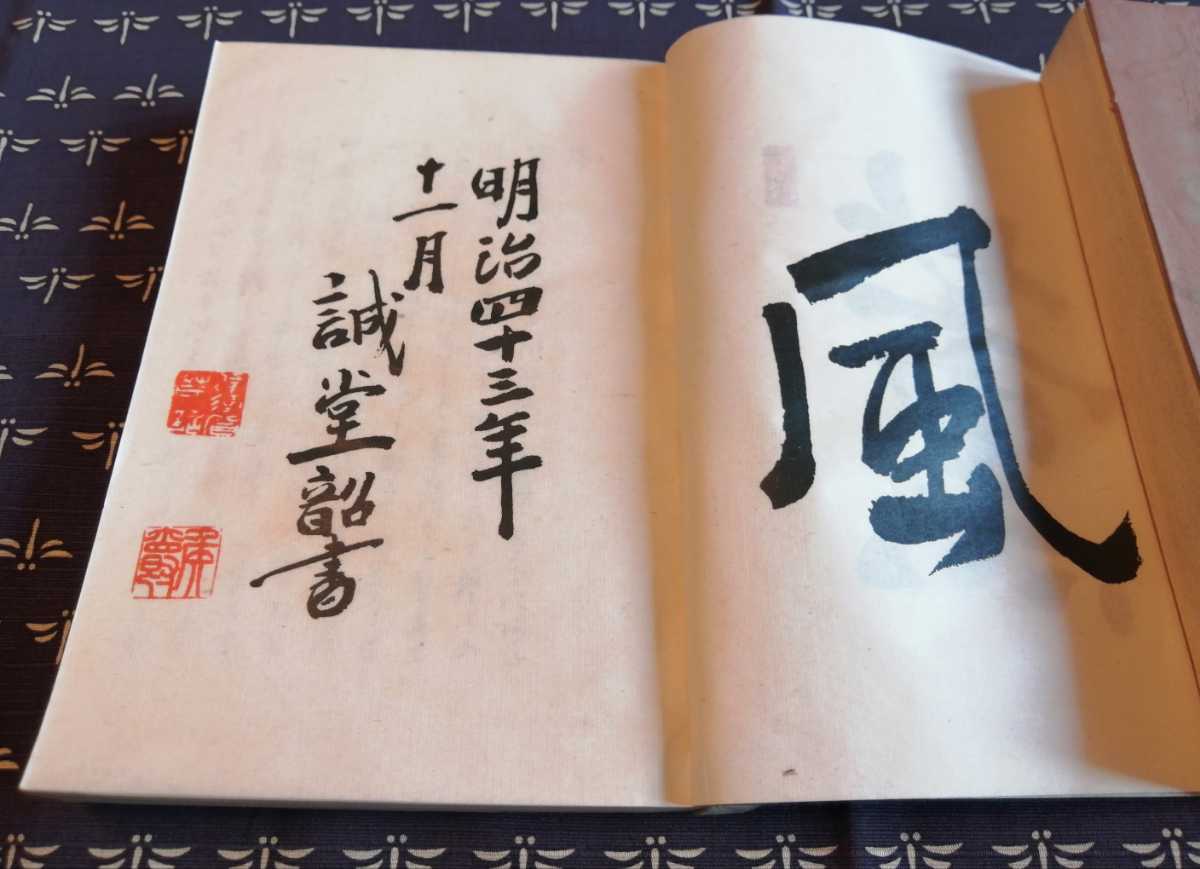 風
明治四十三年
十一月
誠堂韶書